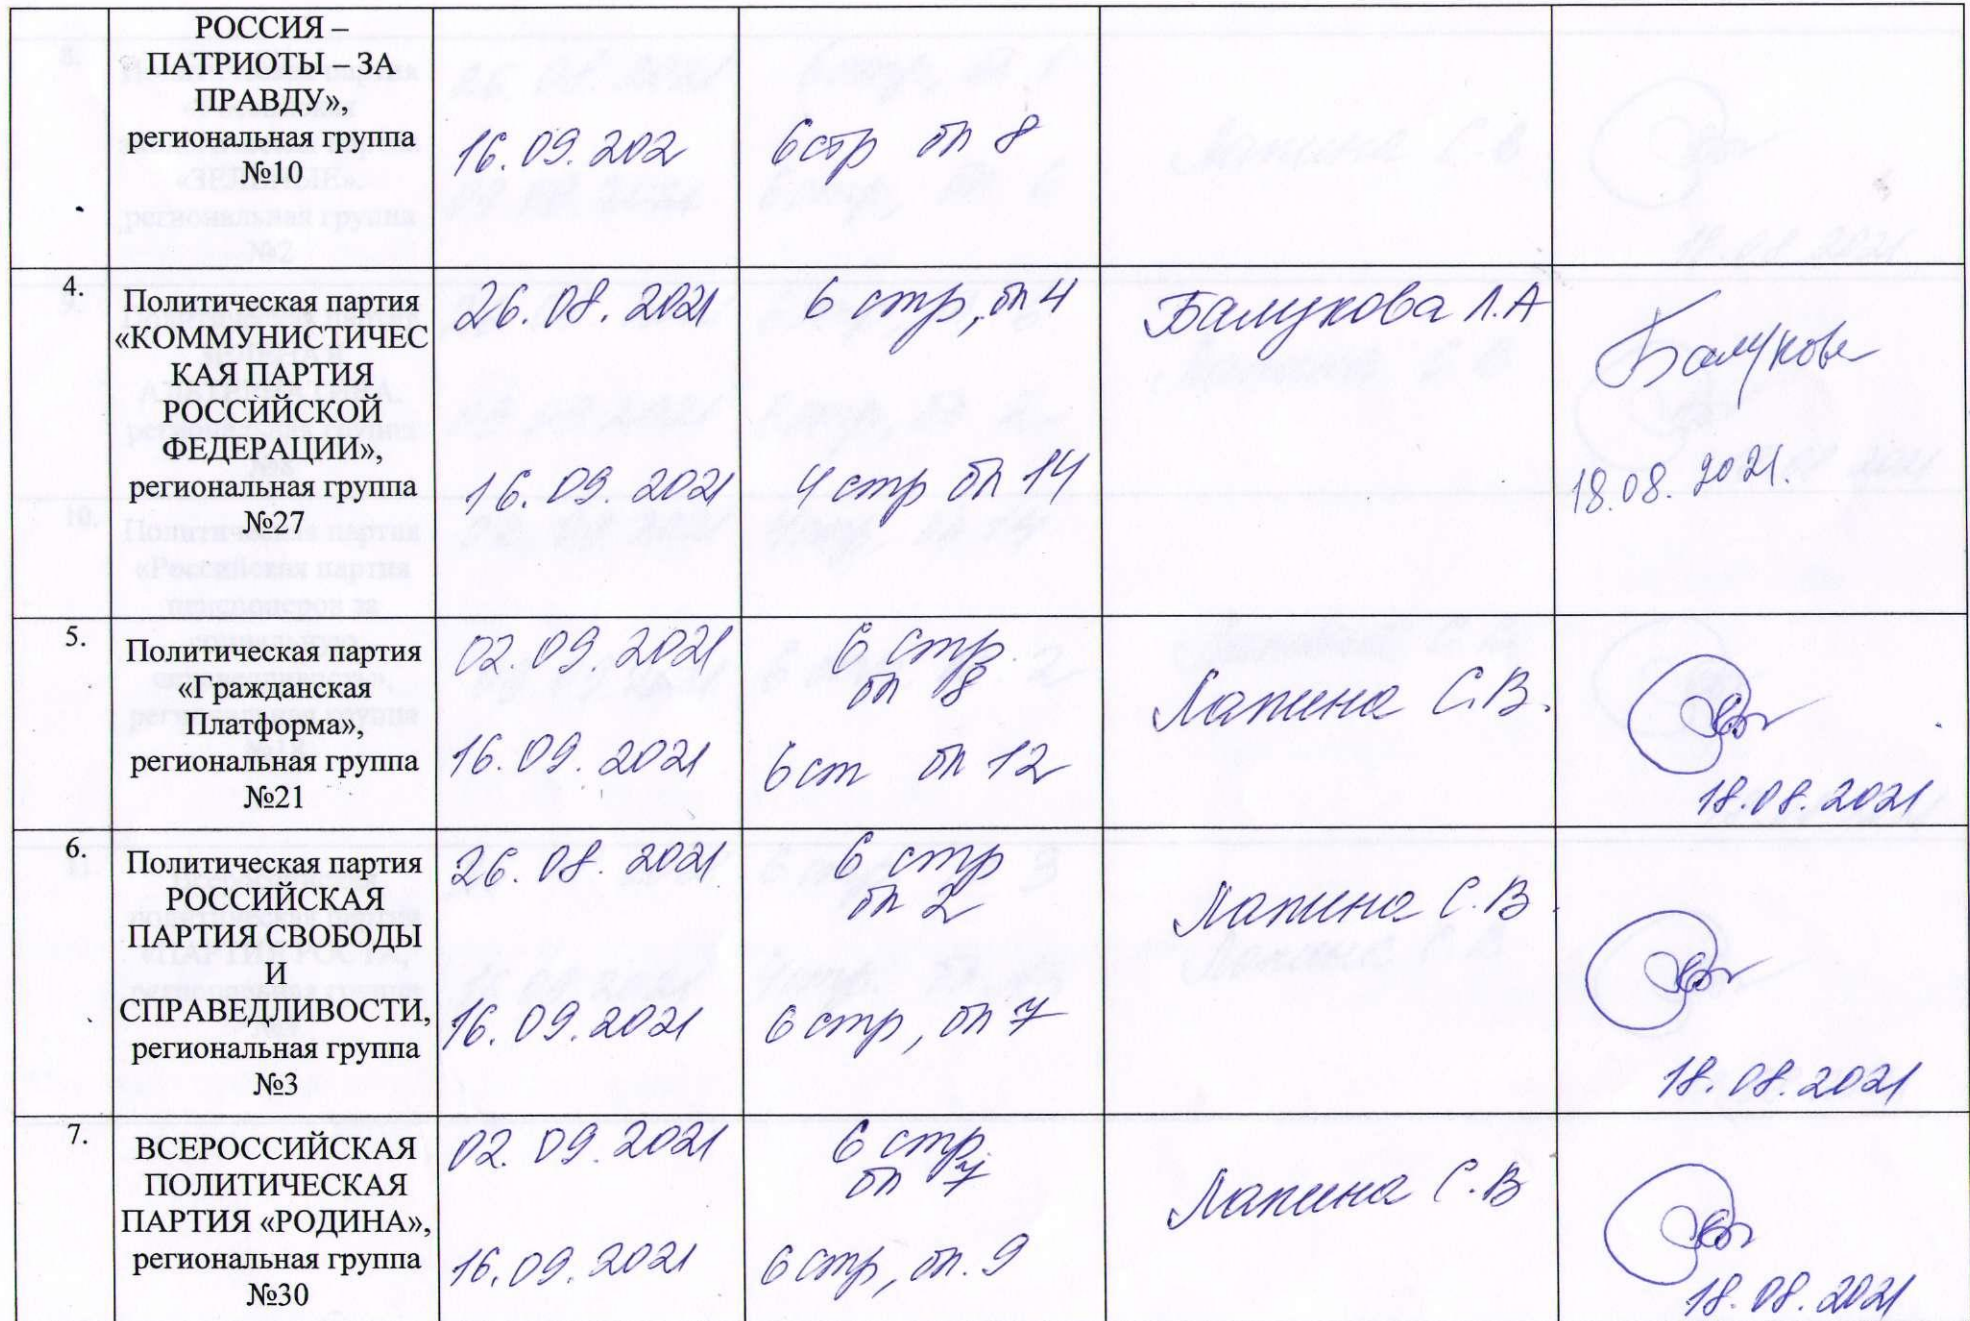 РОССИЯ –
ПАТРИОТЫ – ЗА
ПРАВДУ»,
региональная группа
№10
16.09.202
6стр бл 8
4.
Политическая партия
«КОММУНИСТИЧЕС
КАЯ ПАРТИЯ
РОССИЙСКОЙ
ФЕДЕРАЦИИ»,
региональная группа
№27
26.08.2021
6 стр, бл 4
16.09.2021
4 стр бл 14
Балукова Л.А
Балукова
18.08.2021.
5.
Политическая партия
«Гражданская
Платформа»,
региональная группа
№21
02.09.2021
6 стр.
бл 8
16.09.2021
6ст бл 12
Лапина С.В.
18.08.2021
6.
Политическая партия
РОССИЙСКАЯ
ПАРТИЯ СВОБОДЫ
И
СПРАВЕДЛИВОСТИ,
региональная группа
№3
26.08.2021
6 стр
бл 2
16.09.2021
6 стр, бл 7
Лапина С.В.
18.08.2021
7.
ВСЕРОССИЙСКАЯ
ПОЛИТИЧЕСКАЯ
ПАРТИЯ «РОДИНА»,
региональная группа
№30
02.09.2021
6 стр,
бл 7
16.09.2021
6 стр, бл. 9
Лапина С.В
18.08.2021